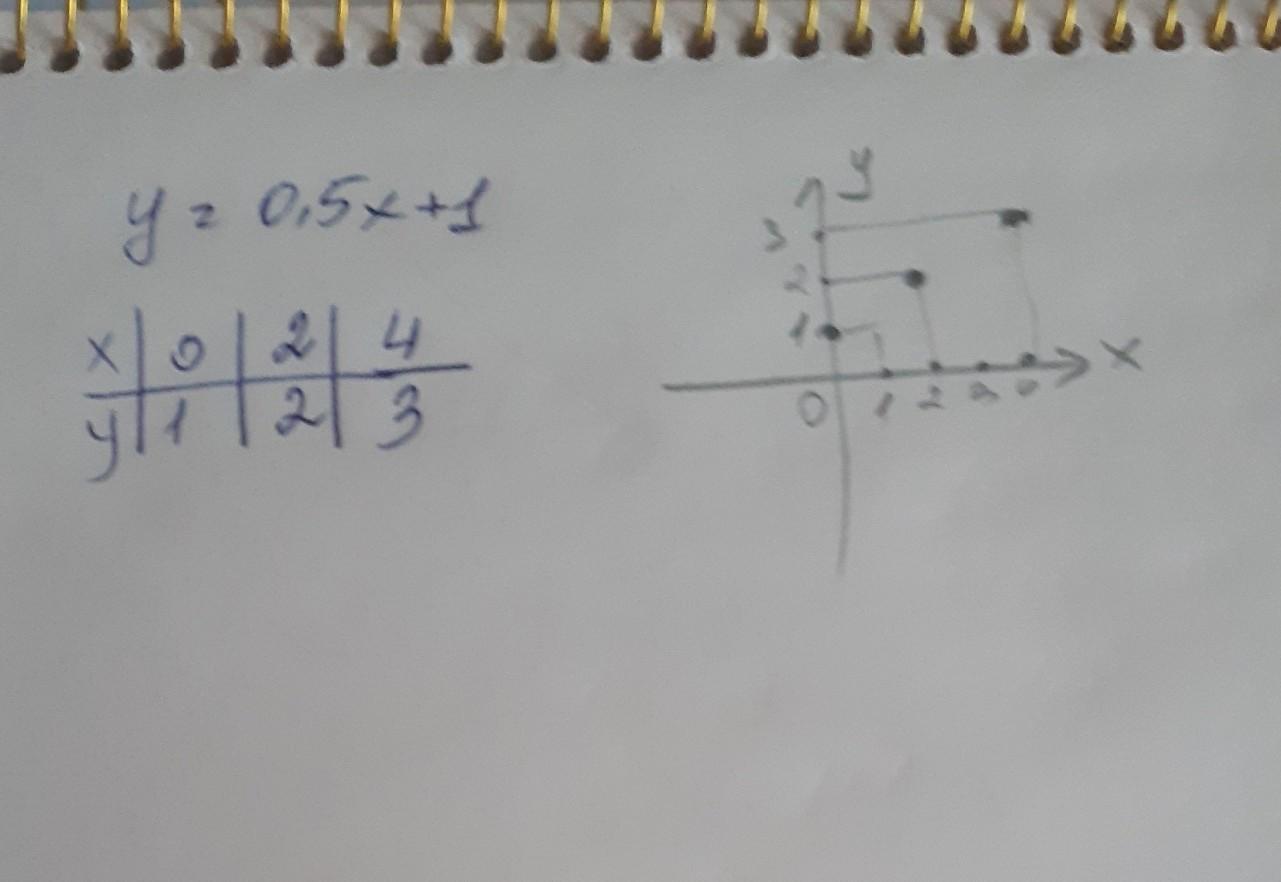 y = 0,5x+1
x | 0 | 2 | 4
y | 1 | 2 | 3
y
3
2
1
x
0 1 2 3